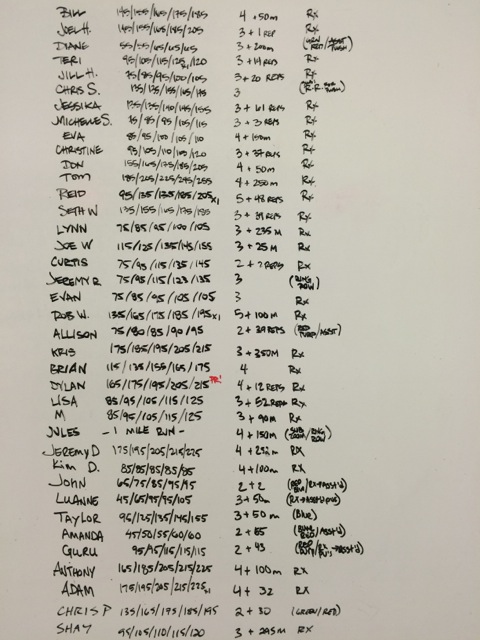 BILL 145/155/165/175/185 4 + 50m Rx
JOEL H. 3 + 1 REP Rx
DIANE 55/55/65/65/65 3 + 200m
TERI 95/105/115/125/120 3 + 14 REPS Rx
JILL H. 75/85/95/100/105 3 + 20 REPS
CHRIS S. 135/135/155/165/175 3
JESSIKA 125/135/140/145/155 3 + 61 REPS Rx
MICHELLE S. 75/85/95/105/115 3 + 3 REPS Rx
EVA 85/95/100/105/110 4 + 150m Rx
CHRISTINE 95/105/110/105/120 3 + 37 REPS Rx
DON 155/165/175/185/205 4 + 50m Rx
TOM 185/205/225/245/255 4 + 250m Rx
REID 95/135/135/185/205 x1 5 + 48 REPS Rx
SETH W 135/155/165/175/185 3 + 39 REPS Rx
LYNN 75/85/95/100/105 3 + 235 M Rx
JOE W 115/125/135/145/155 3 + 25 M Rx
CURTIS 75/95/115/135/145 2 + 7 REPS Rx
JEREMY R 75/95/115/123/135 3 (RING ROW)
EVAN 75/85/95/105/105 3 Rx
ROB W. 135/165/175/185/195 x1 5 + 100m Rx
ALLISON 75/80/85/90/95 2 + 39 REPS
KRIS 175/185/195/205/215 3 + 350M Rx
BRIAN 115/135/155/165/175 4 Rx
DYLAN 165/175/195/205/215 PR! 4 + 12 REPS Rx
LISA 85/95/105/115/125 3 + 52 REPS Rx
M 85/95/105/115/125 3 + 90m Rx
JULES - 1 MILE RUN - 4 + 150M
JEREMY D 175/195/205/215/225 4 + Rx
Kim D. 85/85/85/85/85 4 + 100m Rx
JOHN 65/75/85/95/95 2 + 2
LUANNE 45/65/95/95/105 3 + 50m
TAYLOR 95/125/135/145/155 3 + 50m (Blue)
AMANDA 45/50/55/60/60 2 + 65
GURU 95/95/115/115/115 2 + 43
ANTHONY 165/185/205/215/225 4 + 100m RX
ADAM 175/195/205/215/225 4 + 32 RX
CHRIS P 135/165/175/185/195 2 + 30 (GREEN/RED)
SHAY 95/105/110/115/120 3 + 295m RX